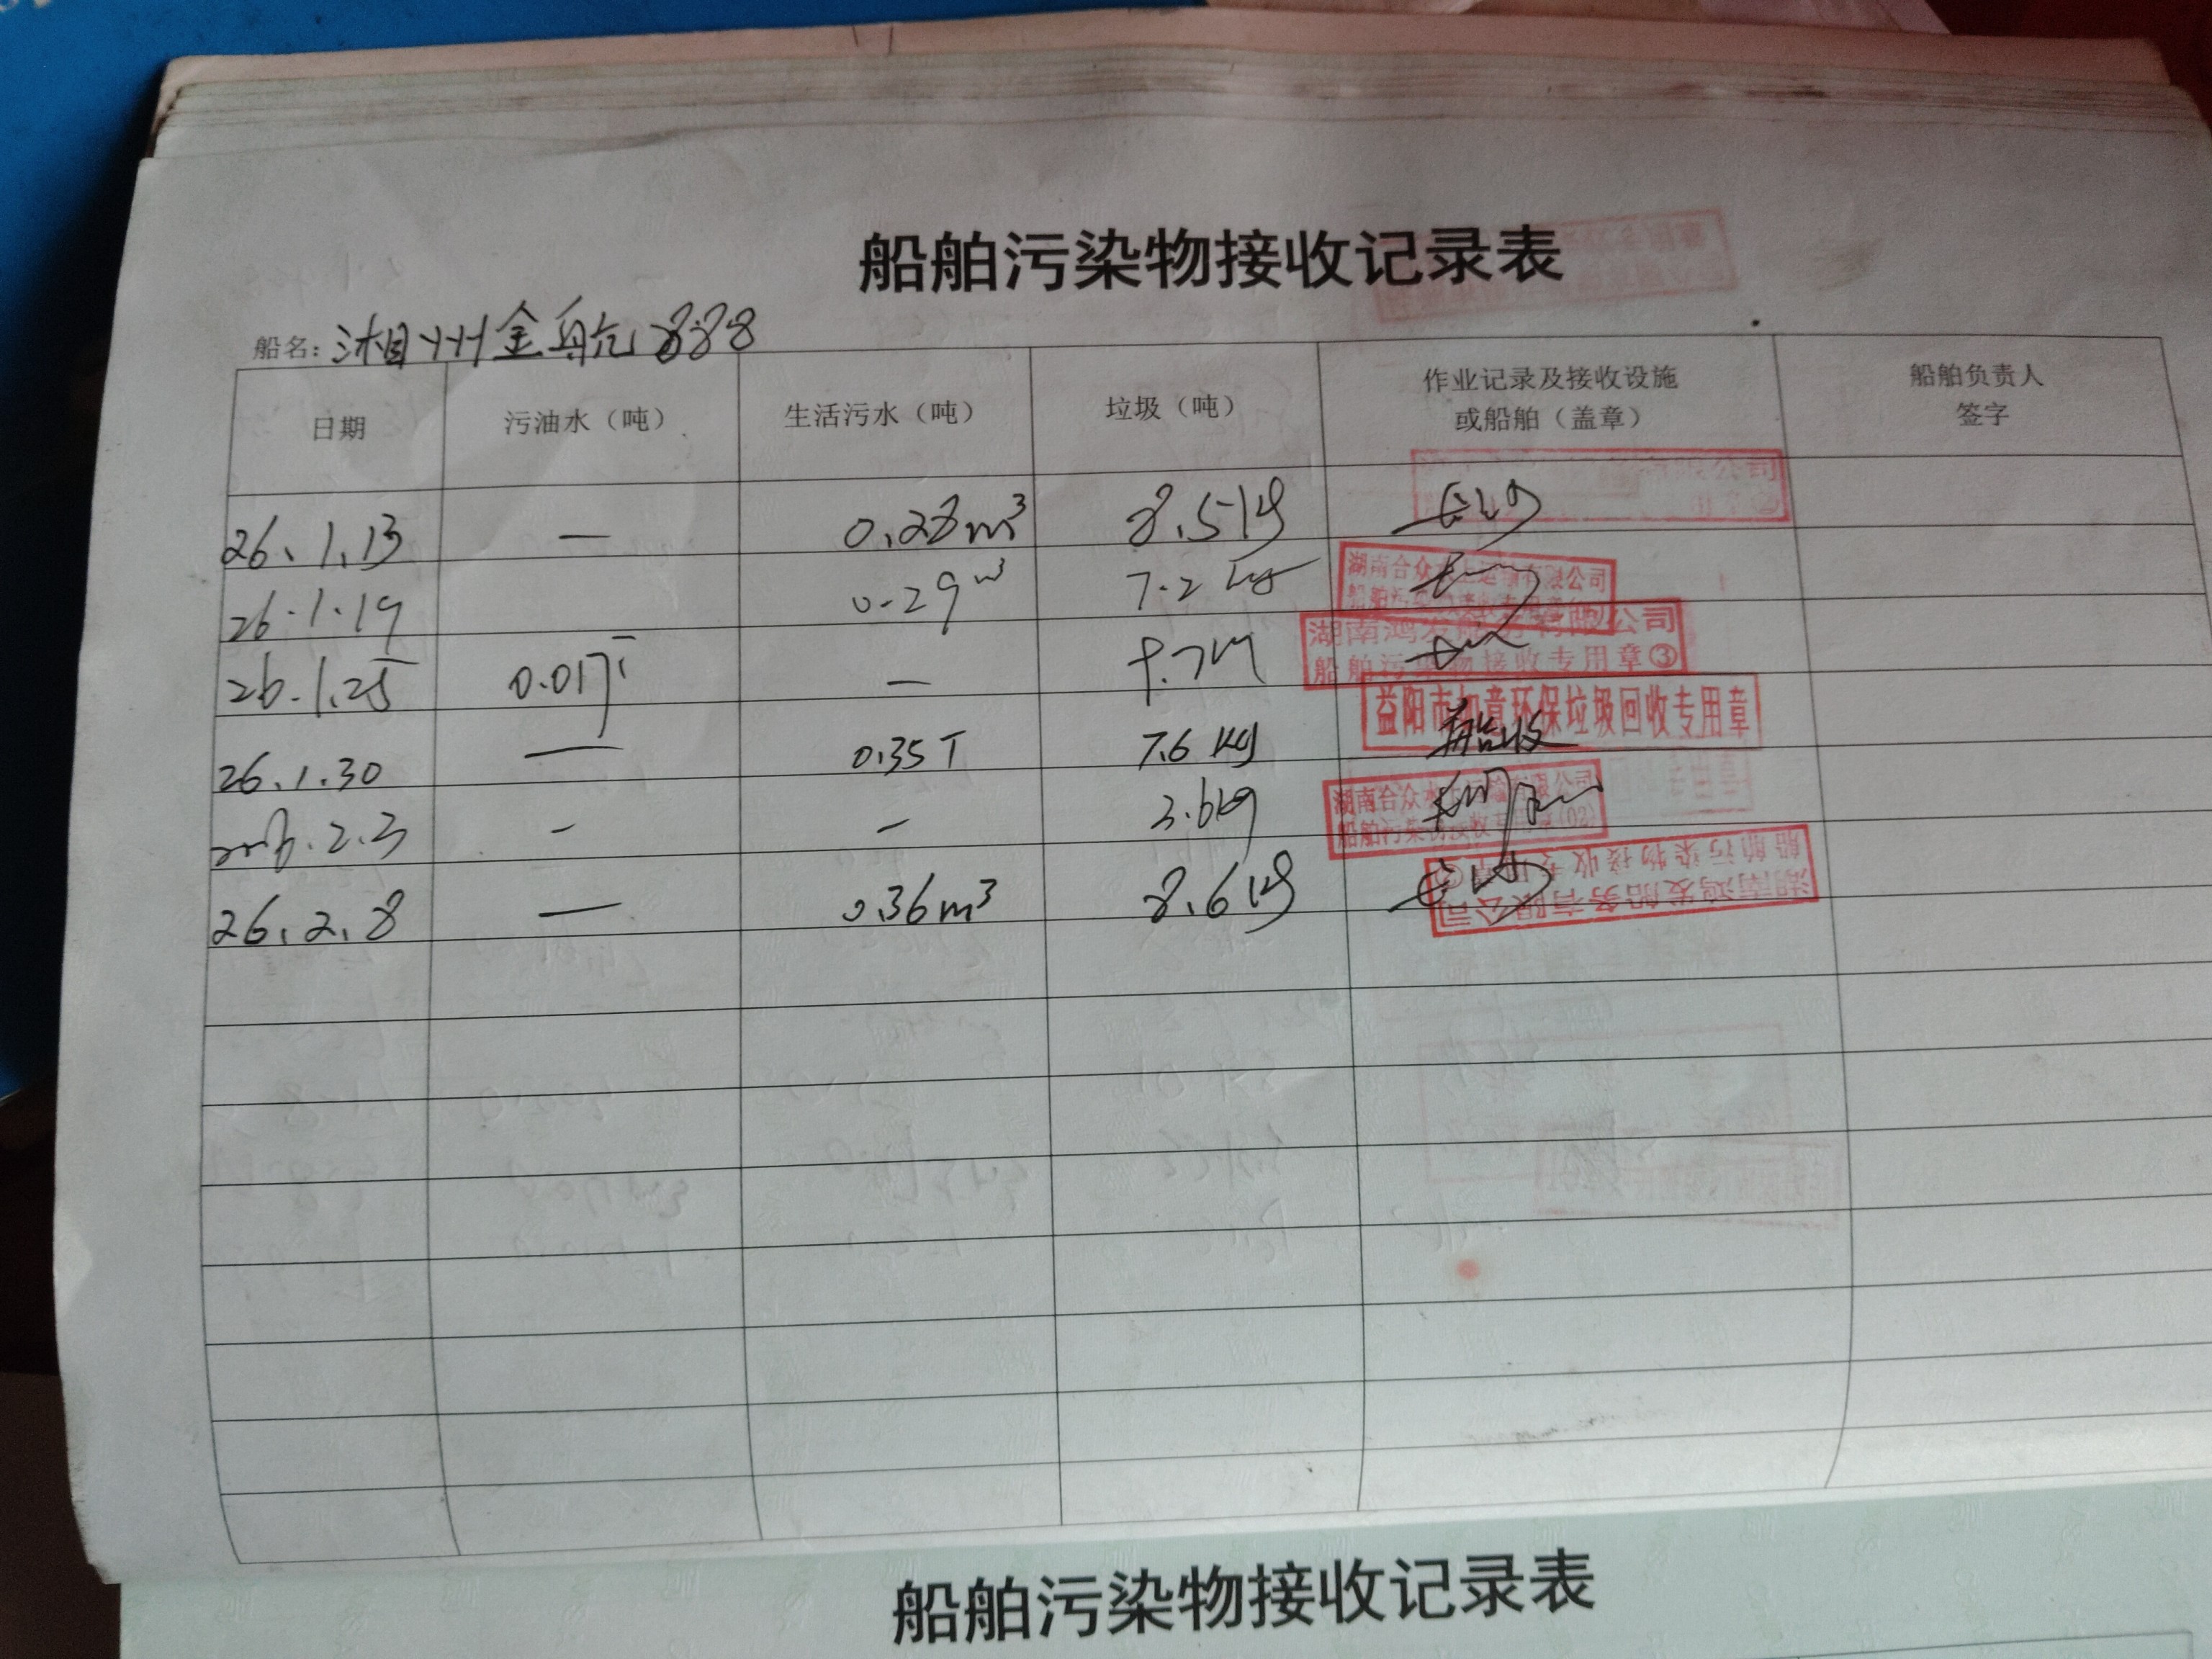 船舶污染物接收记录表
船名: 湘州金航888
日期 污油水（吨） 生活污水（吨） 垃圾（吨） 作业记录及接收设施或船舶（盖章） 船舶负责人签字
26.1.13 — 0.28m³ 8.5kg
26.1.19 0.29m³ 7.2kg 湖南合众水上运输有限公司
26.1.25 0.01T — 湖南鸿发船务有限公司 船舶污染物接收专用章③
26.1.30 — 0.35T 7.6kg 益阳市如意环保垃圾回收专用章 船收
2.3 - - 3.6kg 湖南合众水上运输有限公司 船舶污染物接收专用章(02)
26.2.8 — 0.36m³ 8.6kg 湖南鸿发船务有限公司 船舶污染物接收专用章
船舶污染物接收记录表